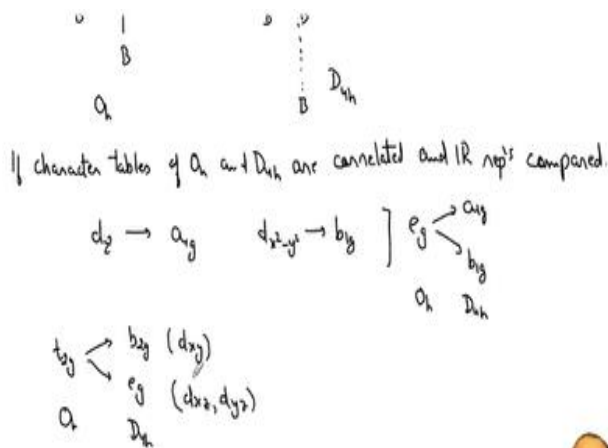 B
B D₄h
Oh
If character tables of Oh and D₄h are correlated and IR rep's compared.
dz² → a₁g dx²-y² → b₁g ] eg a₁g
b₁g
Oh D₄h
t₂g b₂g (dxy)
eg (dxz, dyz)
Oh D₄h